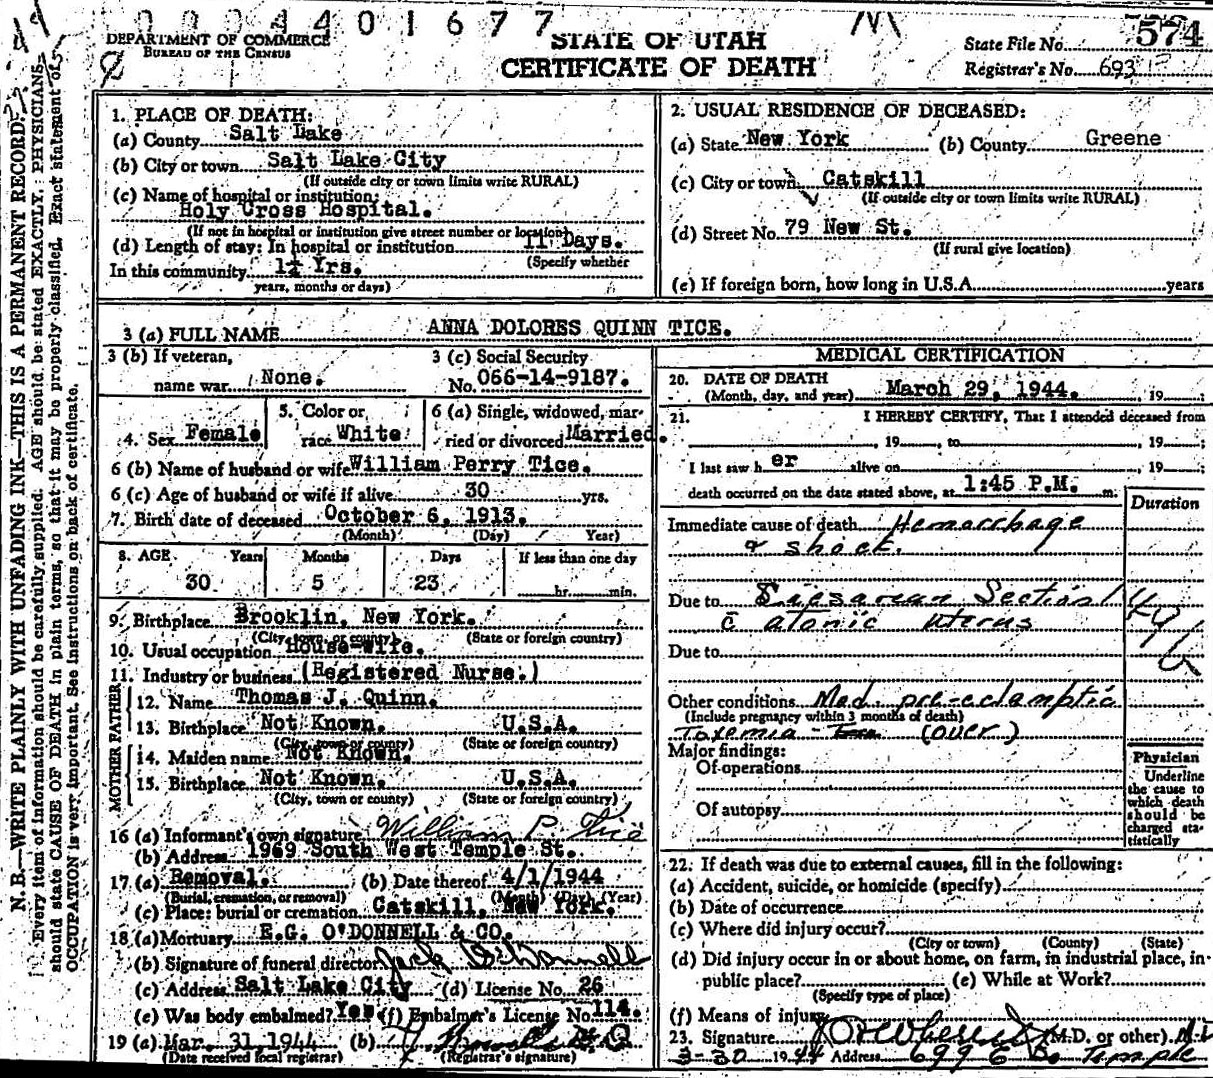 0004401677
DEPARTMENT OF COMMERCE
BUREAU OF THE CENSUS
STATE OF UTAH
CERTIFICATE OF DEATH
State File No. 574
Registrar's No. 693
N. B.—WRITE PLAINLY WITH UNFADING INK—THIS IS A PERMANENT RECORD.
Every item of information should be carefully supplied. AGE should be stated EXACTLY. PHYSICIANS
should state CAUSE OF DEATH in plain terms, so that it may be properly classified. Exact statement of
OCCUPATION is very important. See instructions on back of certificate.
1. PLACE OF DEATH:
(a) County Salt Lake
(b) City or town Salt Lake City
(If outside city or town limits write RURAL)
(c) Name of hospital or institution:
Holy Cross Hospital.
(If not in hospital or institution give street number or location)
(d) Length of stay: In hospital or institution 11 Days.
(Specify whether
In this community 1¼ Yrs.
years, months or days)
2. USUAL RESIDENCE OF DECEASED:
(a) State New York (b) County Greene
(c) City or town Catskill
(If outside city or town limits write RURAL)
(d) Street No. 79 New St.
(If rural give location)
(e) If foreign born, how long in U.S.A. years
3 (a) FULL NAME ANNA DOLORES QUINN TICE.
3 (b) If veteran,
name war None.
3 (c) Social Security
No. 066-14-9187.
4. Sex Female
5. Color or
race White
6 (a) Single, widowed, mar-
ried or divorced Married.
6 (b) Name of husband or wife William Perry Tice.
6 (c) Age of husband or wife if alive 30 yrs.
7. Birth date of deceased October 6, 1913.
(Month) (Day) Year)
8. AGE Years Months Days If less than one day
30 5 23 hr. min.
9. Birthplace Brooklin, New York.
(City, town, or county) (State or foreign country)
10. Usual occupation House-wife.
11. Industry or business (Registered Nurse.)
FATHER
12. Name Thomas J. Quinn.
13. Birthplace Not Known. U.S.A.
(City, town or county) (State or foreign country)
MOTHER
14. Maiden name Not Known.
15. Birthplace Not Known. U.S.A.
(City, town or county) (State or foreign country)
16 (a) Informant's own signature William P. Tice
(b) Address 1969 South West Temple St.
17 (a) Removal. (b) Date thereof 4/1/1944
(Burial, cremation, or removal) (Month) (Day) (Year)
(c) Place: burial or cremation Catskill, New York.
18 (a) Mortuary E.G. O'DONNELL & CO.
(b) Signature of funeral director Jack O'Donnell
(c) Address Salt Lake City (d) License No. 26
(e) Was body embalmed? Yes (f) Embalmer's License No. 114.
19 (a) Mar. 31, 1944 (b)
(Date received local registrar) (Registrar's signature)
MEDICAL CERTIFICATION
20. DATE OF DEATH
(Month, day, and year) March 29, 1944. , 19 ;
21. I HEREBY CERTIFY, That I attended deceased from
, 19 , to , 19 ;
I last saw her alive on , 19 ;
death occurred on the date stated above, at 1:45 P.M. m.
Duration
Immediate cause of death Hemorrhage
& shock.
Due to Caesarean Section
c̄ atonic uterus
Due to
Other conditions Med. pre-eclamptic
(Include pregnancy within 3 months of death)
Toxemia - (over)
Major findings:
Of operations
Of autopsy
Physician
Underline
the cause to
which death
should be
charged sta-
tistically
22. If death was due to external causes, fill in the following:
(a) Accident, suicide, or homicide (specify)
(b) Date of occurrence
(c) Where did injury occur?
(City or town) (County) (State)
(d) Did injury occur in or about home, on farm, in industrial place, in
public place? (e) While at Work?
(Specify type of place)
(f) Means of injury
23. Signature (M.D. or other) M.D.
3-30 1944 Address 699 E So. Temple